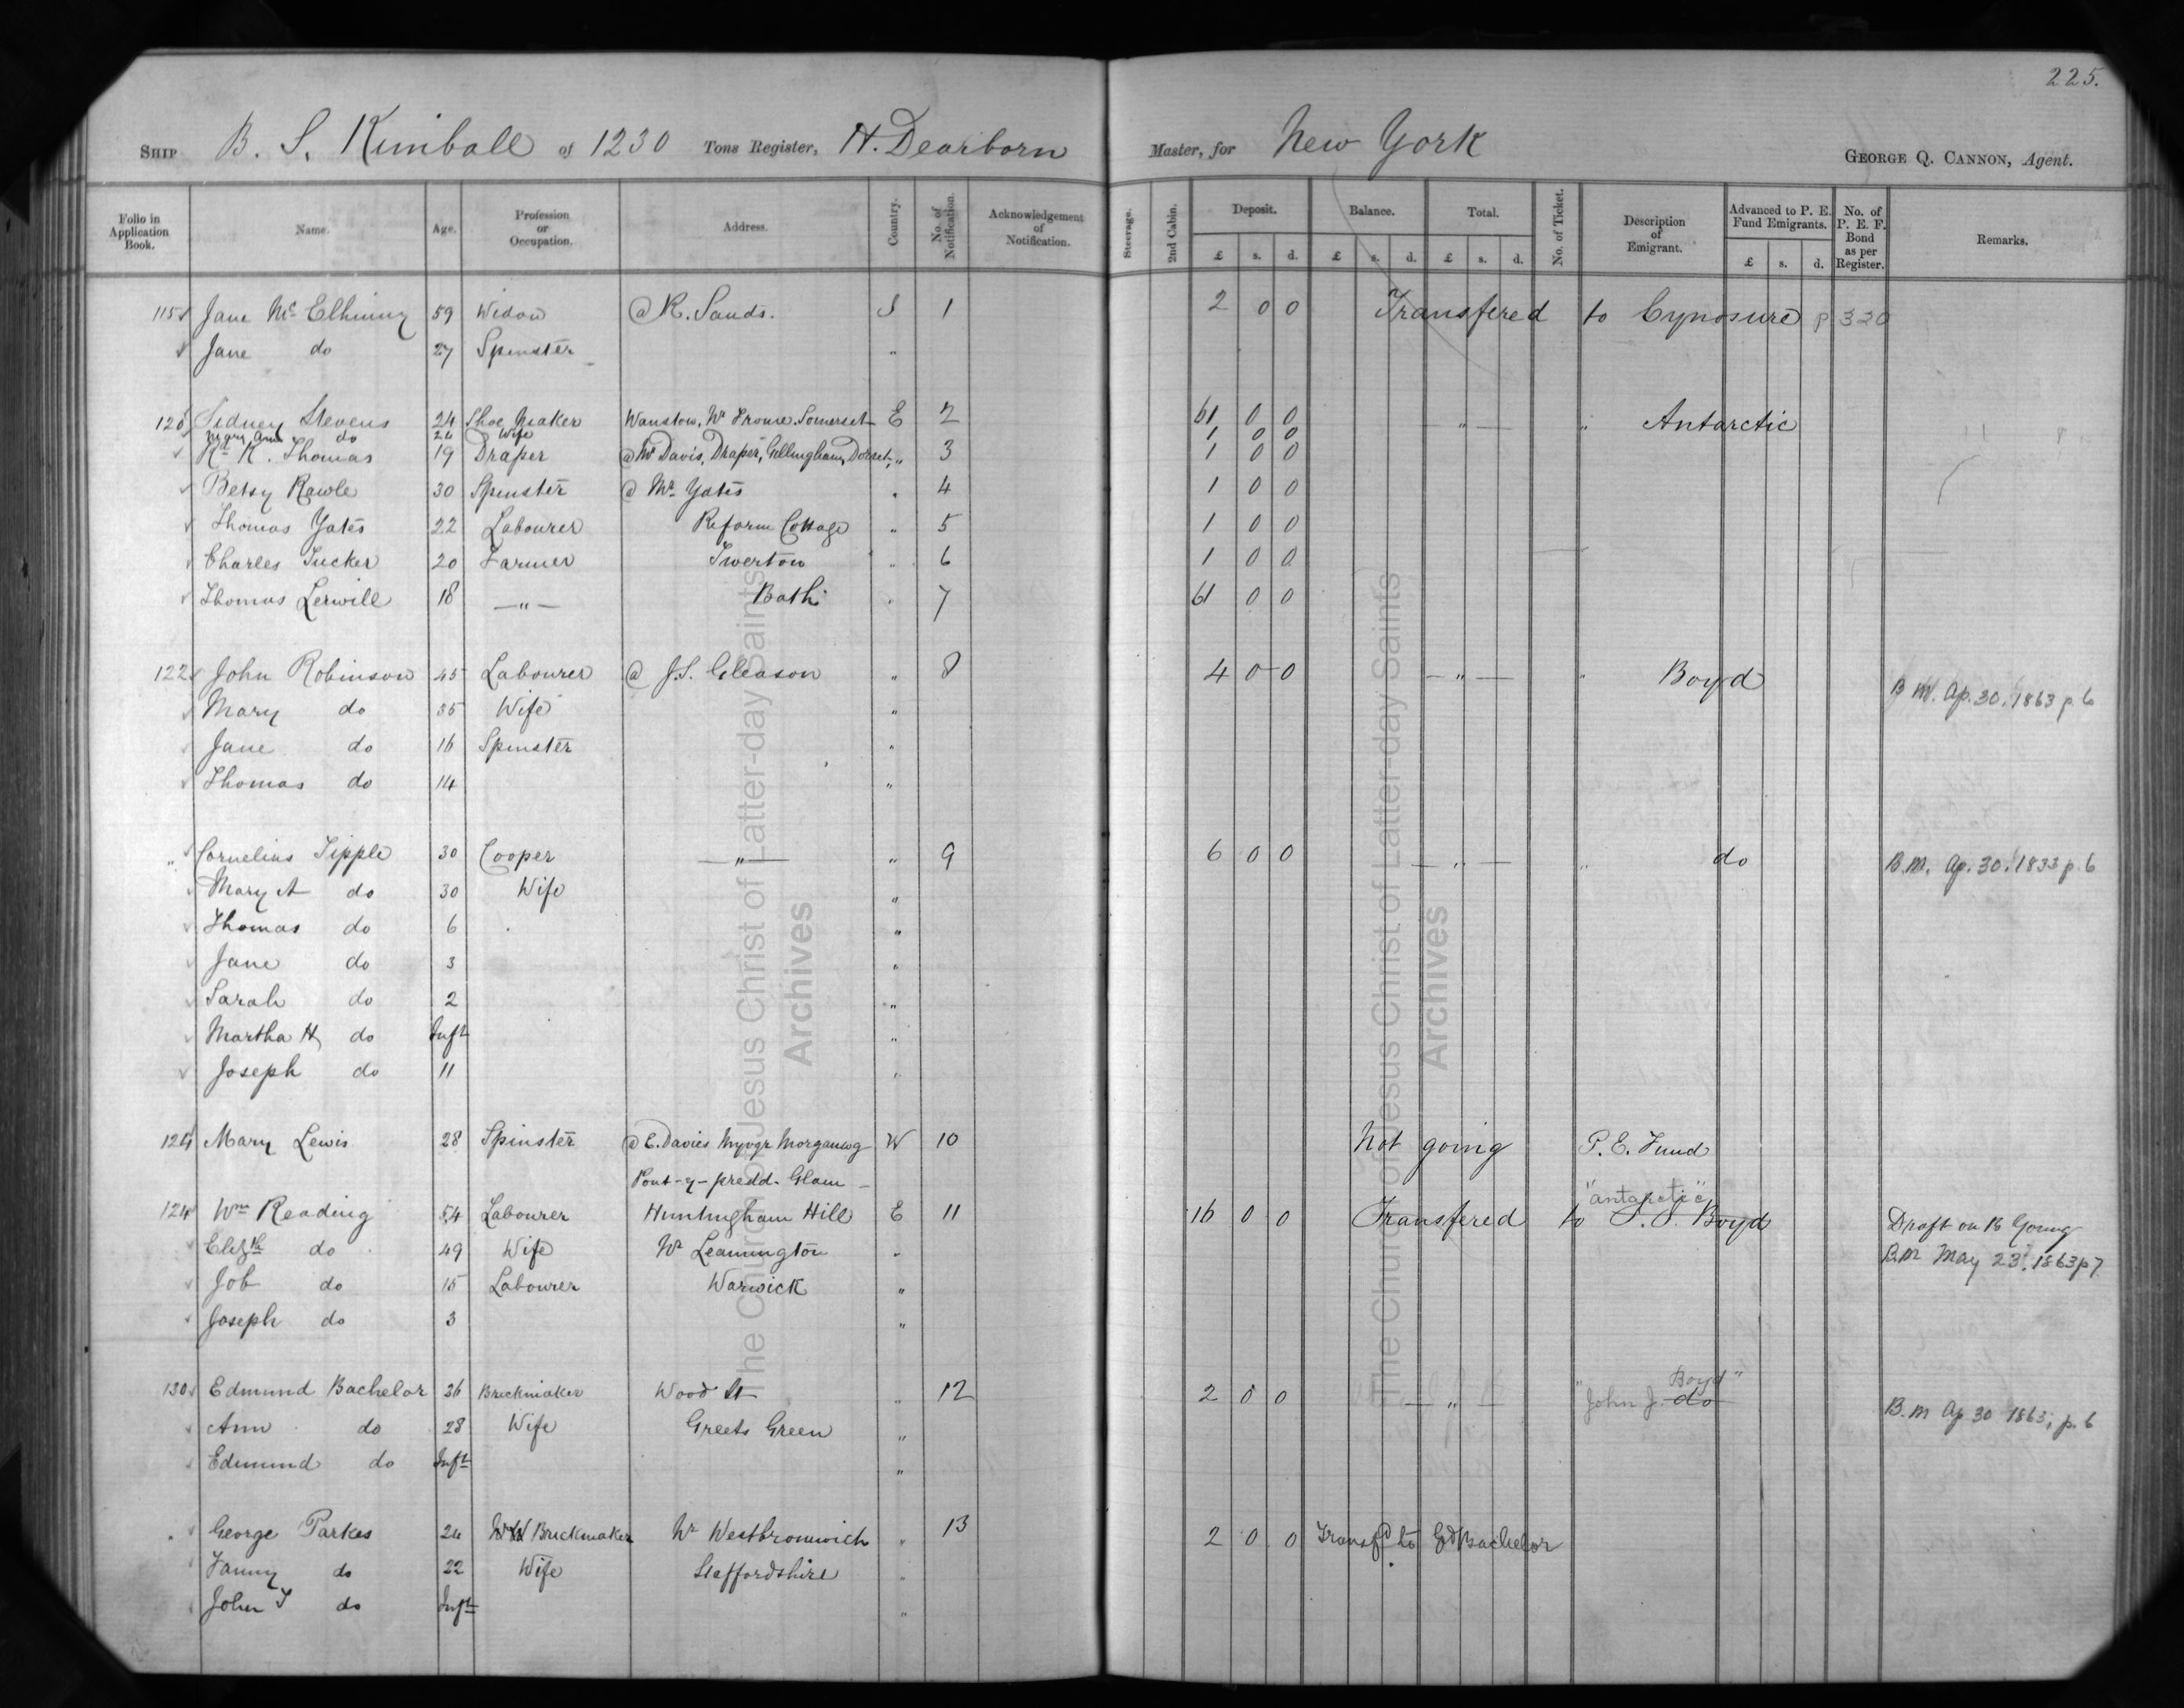 225.
SHIP B. S. Kimball of 1230 Tons Register, H. Dearborn Master, for New York GEORGE Q. CANNON, Agent.
Folio in Application Book. Name. Age. Profession or Occupation. Address. Country. No. of Notification. Acknowledgement of Notification. Steerage. 2nd Cabin. Deposit. Balance. Total. No. of Ticket. Description of Emigrant. Advanced to P. E. Fund Emigrants. No. of P. E. F. Bond as per Register. Remarks.
£ s. d. £ s. d. £ s. d. £ s. d.
115 Jane Mc Elhinny 59 Widow @ R. Sands. S 1 2 0 0 Transfered to Cynosure p 320
Jane do 27 Spinster "
Sidney Stevens 24 Shoe Maker Wanstow, Nr Frome Somerset E 2 61 0 0 — " — " Antarctic
Mary Ann do 26 Wife 1 0 0
Rt K. Thomas 19 Draper @ Mr Davis, Draper, Gillingham, Dorset, " 3 1 0 0
Betsy Rawle 30 Spinster @ Mr Yates " 4 1 0 0
Thomas Yates 22 Labourer Reform Cottage " 5 1 0 0
Charles Tucker 20 Farmer Twerton " 6 1 0 0
Thomas Lerwill 18 — " — Bath " 7 61 0 0
122 John Robinson 45 Labourer @ J.S. Gleason " 8 4 0 0 — " — " Boyd B M. Ap. 30, 1863 p. 6
Mary do 35 Wife "
Jane do 16 Spinster "
Thomas do 14 "
" Cornelius Tipple 30 Cooper — " — " 9 6 0 0 — " — " do B.M. Ap. 30, 1833 p. 6
Mary A do 30 Wife "
Thomas do 6 "
Jane do 3 "
Sarah do 2 "
Martha H do Inft "
Joseph do 11 "
124 Mary Lewis 28 Spinster @ E. Davies Myvyr Morganwg W 10 Not going P. E. Fund
Pont-y-predd. Glam —
"antarctic"
124 Wm Reading 54 Labourer Huntingham Hill E 11 16 0 0 Transfered to J. J. Boyd Draft on B Young
Elizth do 49 Wife Nr Leamington " B.M May 23, 1863 p7.
Job do 15 Labourer Warwick "
Joseph do 3 "
Boyd"
130 Edmund Bachelor 36 Brickmaker Wood St " 12 2 0 0 — " — "John J. do B.M Ap 30 1863, p. 6
Ann do 28 Wife Greets Green "
Edmund do Inft "
George Parkes 24 Brickmaker Nr Westbromwich " 13 2 0 0 Transfd to Ed Bachelor
Fanny do 22 Wife Staffordshire "
John T do Inft "
The Church of Jesus Christ of Latter-day Saints
Archives
The Church of Jesus Christ of Latter-day Saints
Archives